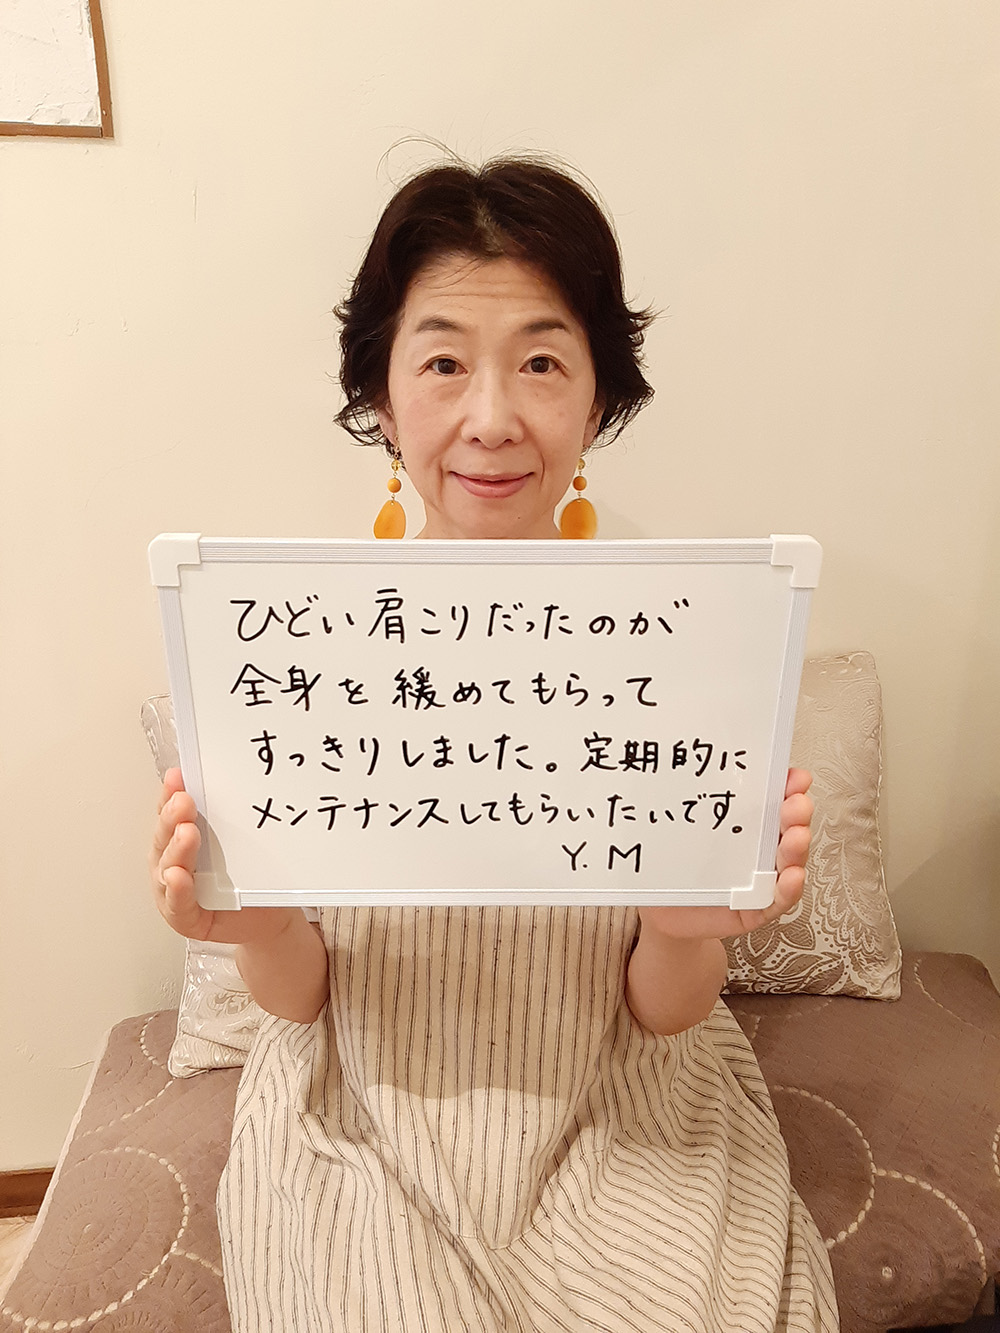 ひどい肩こりだったのが
全身を緩めてもらって
すっきりしました。定期的に
メンテナンスしてもらいたいです。
Y.M